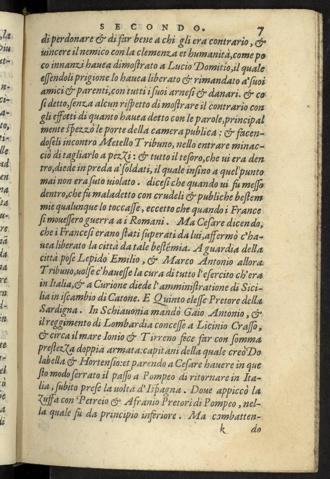 SECONDO. 7
di perdonare & di far bene a chi gli era contrario, &
uincere il nemico con la clemenza et humanità, come po
co innanzi hauea dimostrato a Lucio Domitio, il quale
essendoli prigione lo hauea liberato & rimandato a'suoi
amici & parenti, con tutti i suoi arnesi & danari. & co
si detto, senza alcun rispetto di mostrare il contrario con
gli effetti di quanto hauea detto con le parole, principal
mente spezzò le porte della camera publica: & facen-
doseli incontro Metello Tribuno, nello entrare minac-
ciò di tagliarlo a pezzi: & tutto il tesoro, che ui era den
tro, diede in preda a'soldati, il quale insino a quel punto
mai non era suto uiolato. dicesi che quando ui fu messo
dentro, che fu maladetto con crudeli & publiche bestem
mie qualunque lo toccasse, eccetto che quando i France
si mouessero guerra a i Romani. Ma Cesare dicendo,
che i Francesi erano stati superati da lui, affermò c'ha-
uea liberato la città da tale bestemia. A guardia della
città pose Lepido Emilio, & Marco Antonio allora
Tribuno, uolse c'hauesse la cura di tutto l'esercito ch'era
in Italia, & a Curione diede l'amministratione di Sici-
lia in iscambio di Catone. E Quinto elesse Pretore della
Sardigna. In Schiauonia mandò Gaio Antonio, &
il reggimento di Lombardia concesse a Licinio Crasso,
& circa il mare Ionio & Tirreno fece far con somma
prestezza doppia armata: capitani della quale creò Do
labella & Hortensio: et parendo a Cesare hauere in que
sto modo serrato il passo a Pompeo di ritornare in Ita-
lia, subito prese la uolta d'Ispagna. Doue appiccò la
zuffa con Petreio & Afranio Pretori di Pompeo, nel-
la quale fu da principio inferiore. Ma combatten-
k do